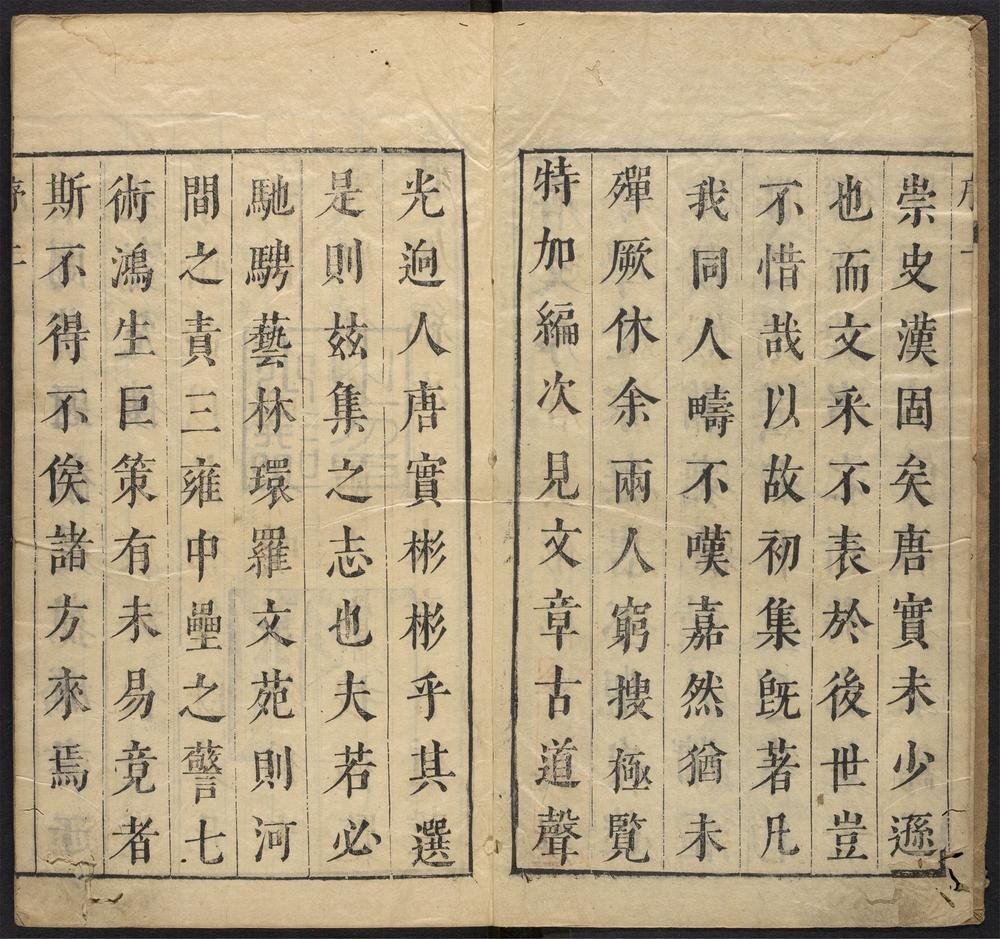 崇史漢固矣唐實未少遜
也而文采不表於後世豈
不惜哉以故初集旣著凡
我同人疇不嘆嘉然猶未
殫厥休余兩人窮搜極覽
特加編次見文章古道聲
光逈人唐實彬彬乎其選
是則茲集之志也夫若必
馳騁藝林環羅文苑則河
間之責三雍中壘之警七
術鴻生巨策有未易竟者
斯不得不俟諸方來焉